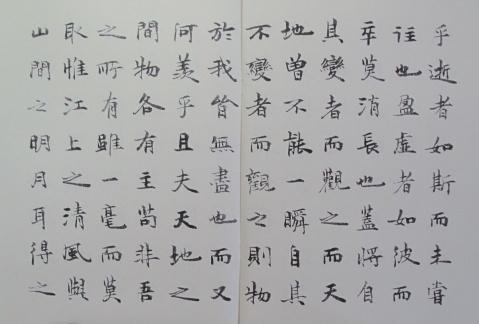 乎逝者如斯而未嘗
往也盈虛者如彼而
卒莫消長也蓋將自
其變者而觀之而天
地曾不能一瞬自其
不變者而觀之則物
於我皆無盡也而又
何羨乎且夫天地之
間物各有主苟非吾
之所有雖一毫而莫
取惟江上之清風與
山間之明月耳得之